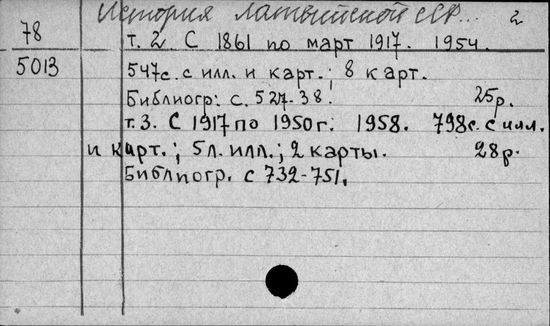 История Латвийской ССР... 2
78
т. 2. С 1861 по март 1917. 1954.
5013
547с. с илл. и карт.; 8 карт.
Библиогр: с. 527-38. 25р.
т. 3. С 1917 по 1950г. 1958. 798с. с илл.
и карт.; 5л. илл.; 2 карты. 28р.
Библиогр. с 732-751.